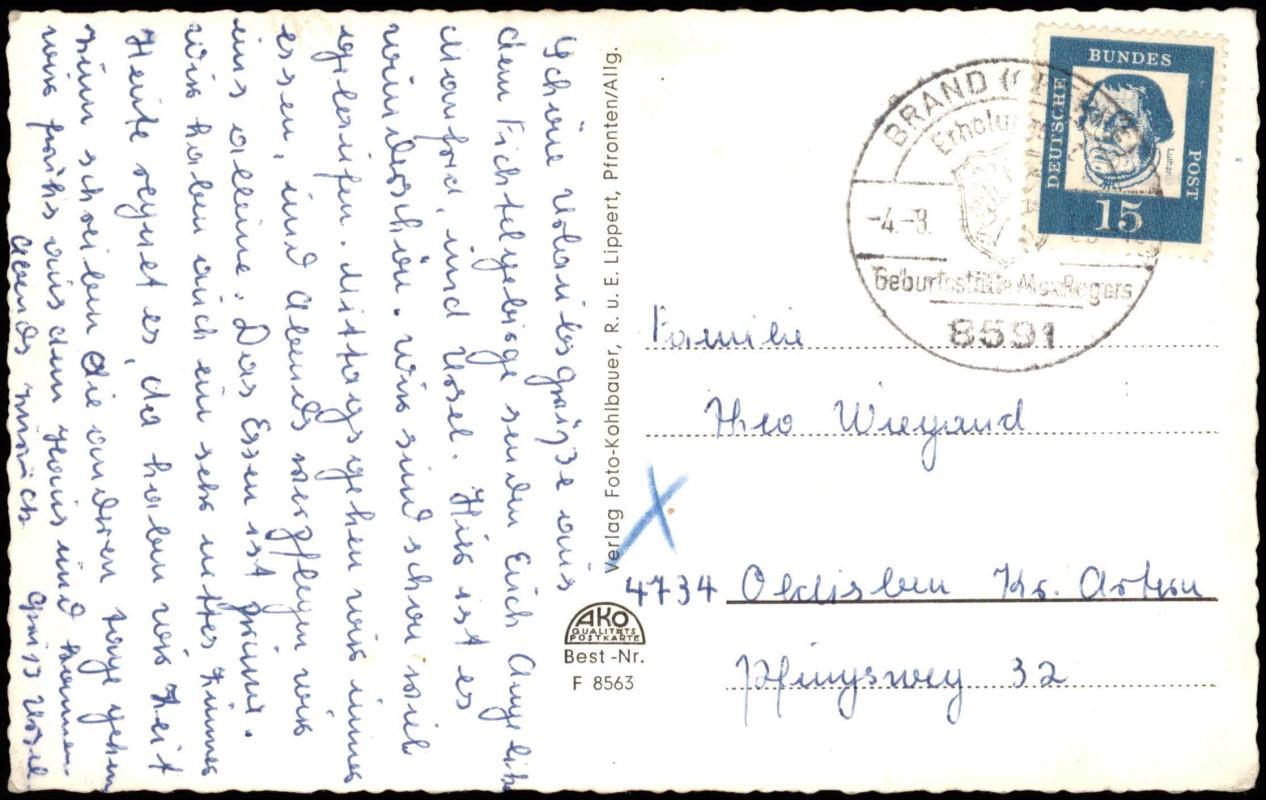 Schöne Urlaubsgrüße aus
dem Fichtelgebirge senden Euch Angelika
Manfred, und Ursel. Hier ist es
wunderschön. Wir sind schon viel
gelaufen. Mittags gehen wir immer
essen, und Abends verpflegen wir
uns alleine. Das Essen ist prima.
Wir haben auch ein sehr nettes Zimmer
Heute regnet es, da haben wir Zeit
zum schreiben die anderen Tage gehen
wir früh aus dem Haus und kommen
Abends zurück Gruß Ursel
Verlag Foto-Kohlbauer, R. u. E. Lippert, Pfronten/Allg.
AKO
QUALITÄTS
POSTKARTE
Best-Nr.
F 8563
BUNDES
DEUTSCHE
POST
Luther
15
BRAND
Erholu
-4.-8.
Geburtsstätte Max Regers
8591
Familie
Theo Wiegand
4734 Oldisleben Kr. Artern
Pfingsweg 32